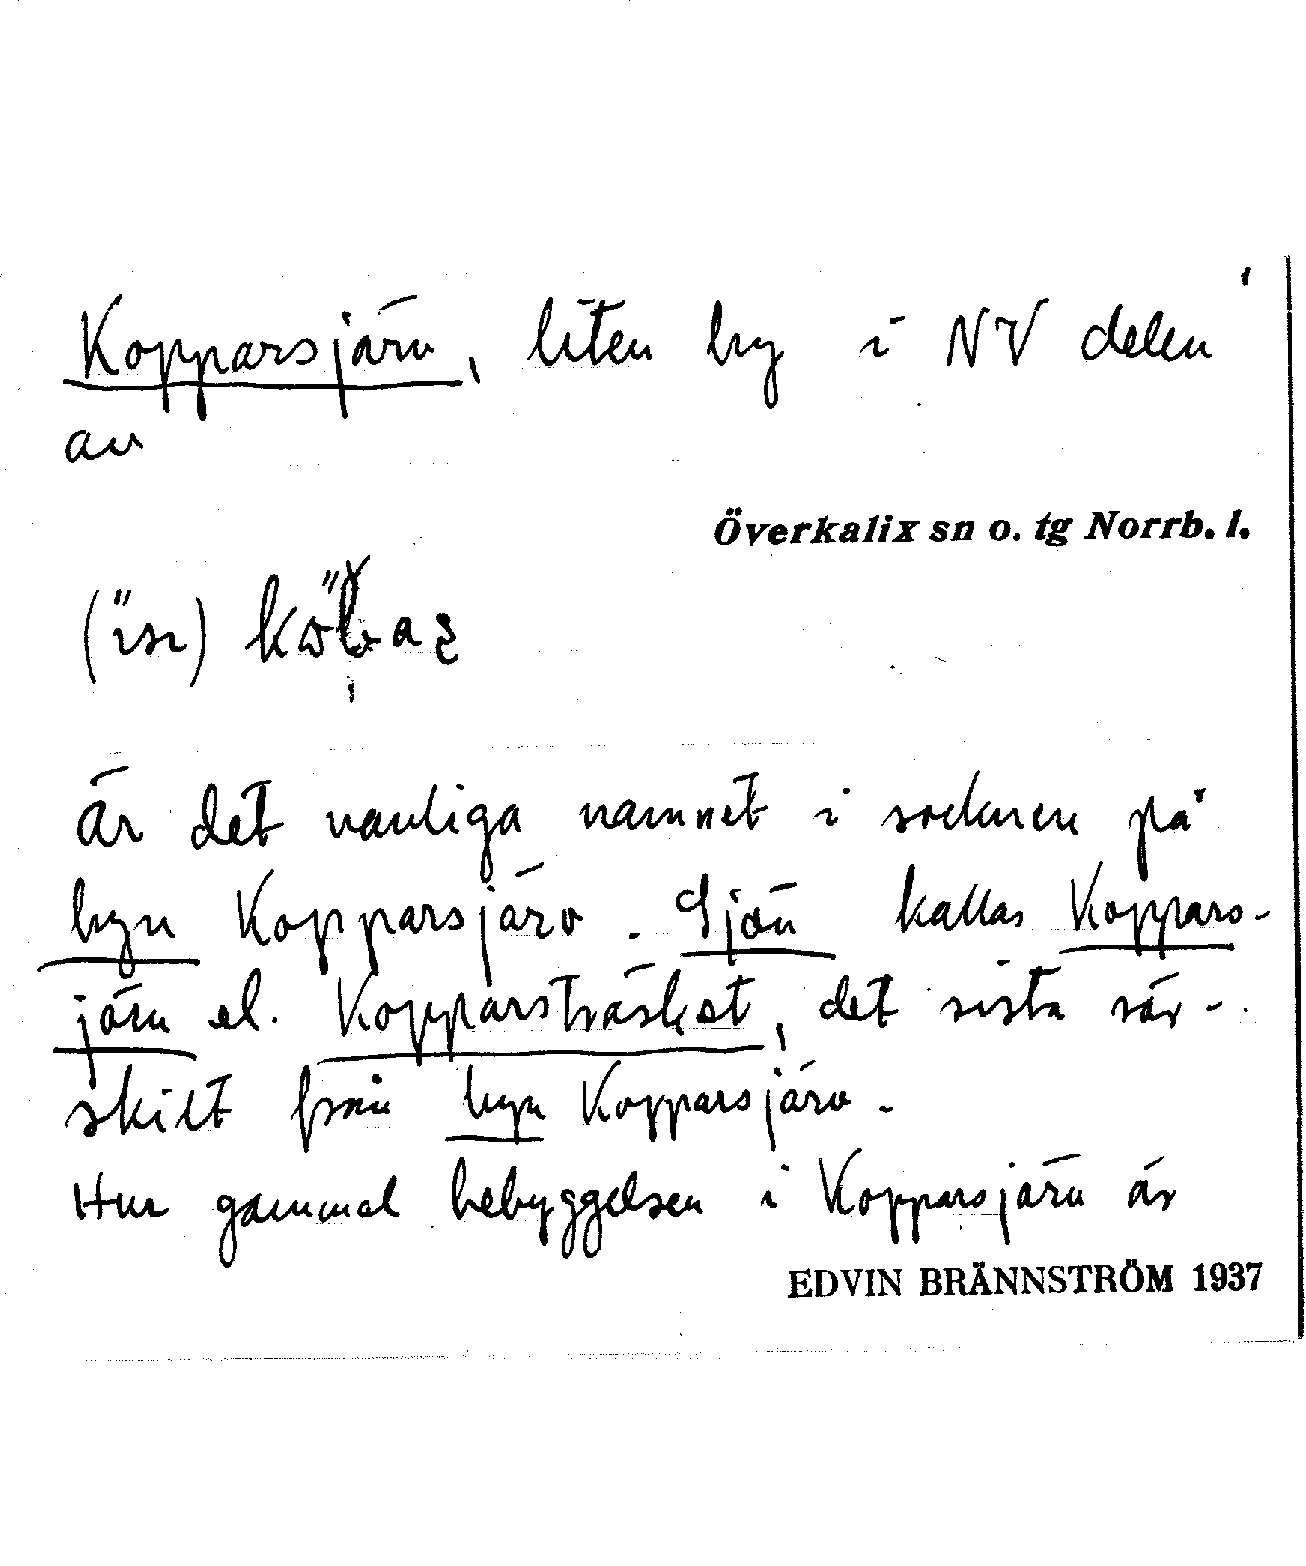 Kopparsjärv, liten by i NV delen
av
Överkalix sn o. tg Norrb. l.
är det vanliga namnet i socknen på
byn Kopparsjärv. Sjön kallas Koppars-
järv el. Kopparsträsket, det sista sär-
skilt från byn Kopparsjärv.
Hur gammal bebyggelsen i Kopparsjärv är
EDVIN BRÄNNSTRÖM 1937